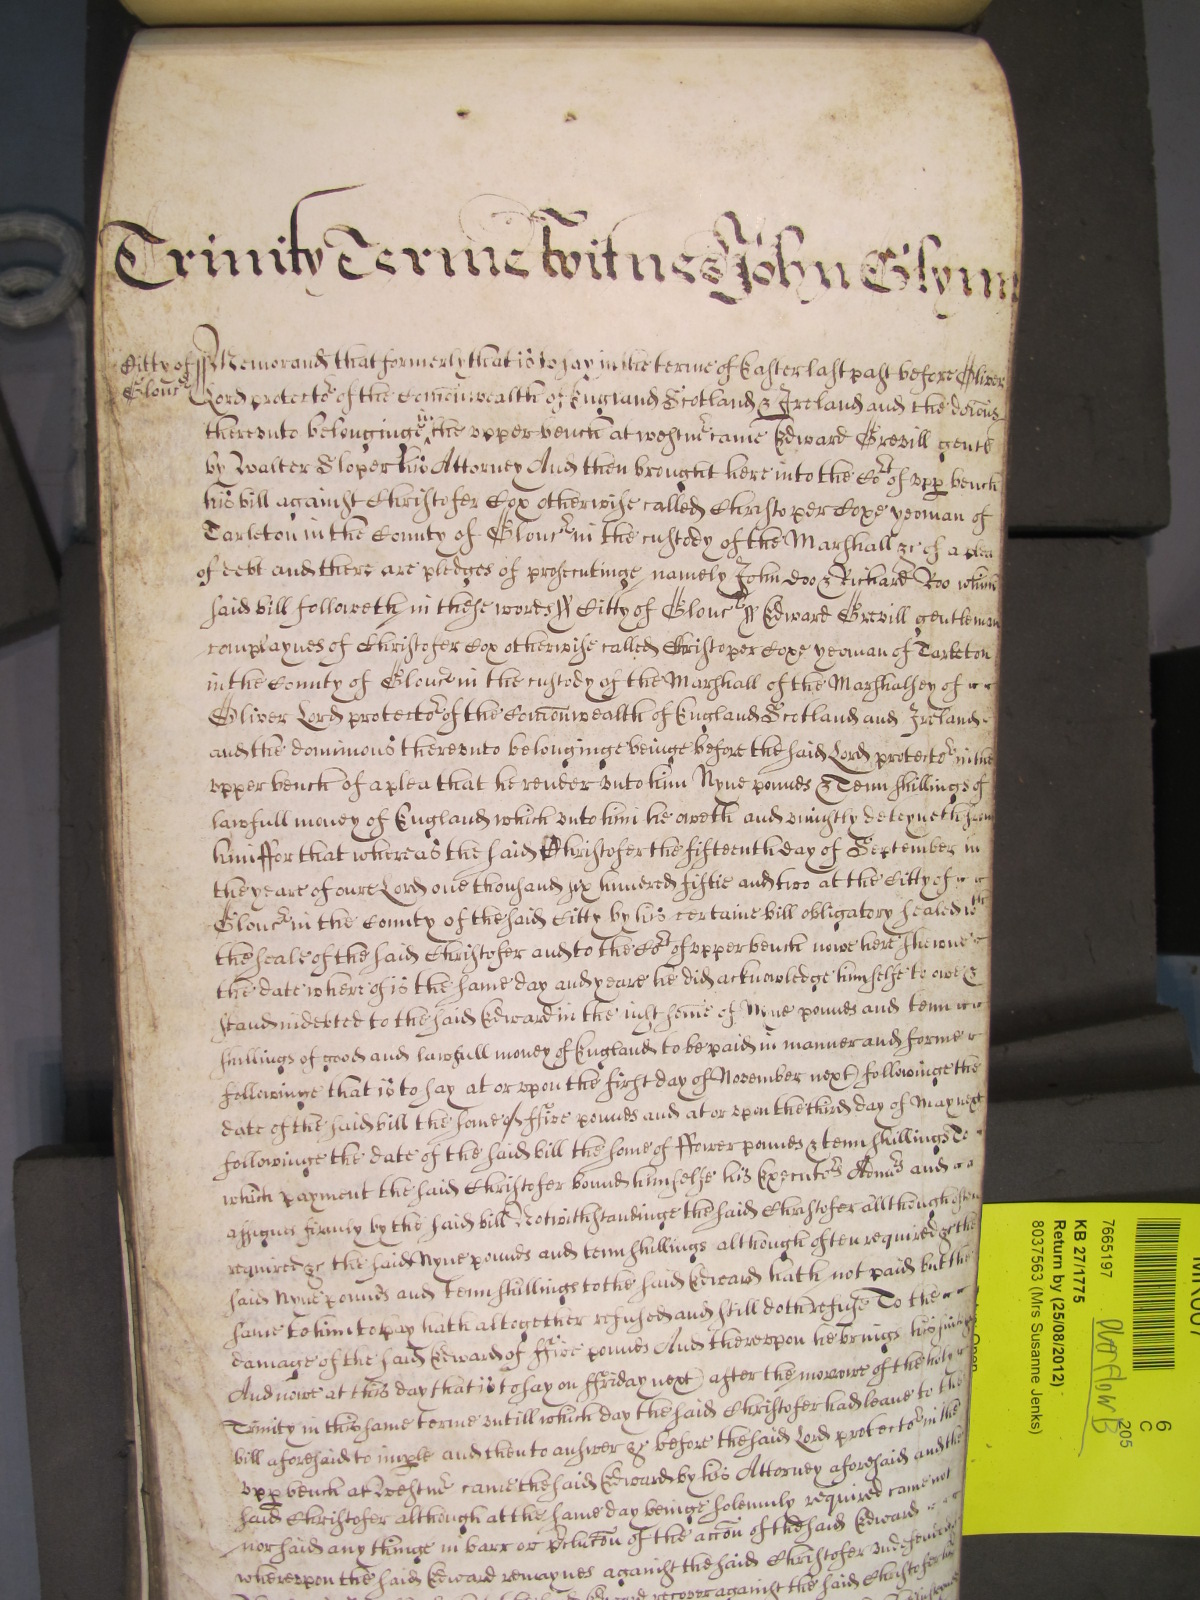 Trinity Terme Witnes John Glynn
Citty of ss Memorand that formerly that is to say in the terme of Easter last past before Oliver
Glouc Lord protector of the Comonwealth of England Scotland & Ireland and the dominions
thereunto belonginge in the upper bench at westmr came Edward Grevill gent
by Walter Sloper his Attorney And then brought here into the Cort of upp bench
his bill against Christofer Cox otherwise called Christoper Coxe yeoman of
Tarleton in the County of Glouc in the custody of the Marshall &c of a plea
of debt and there are pledges of prosecutinge namely John Doo & Richard Roo which
said bill followeth in these words ss Citty of Glouc ss Edward Grevill gentleman
complaynes of Christofer Cox otherwise called Christoper Coxe yeoman of Tarleton
in the County of Glouc in the custody of the Marshall of the Marshalsey of
Oliver Lord protector of the Comonwealth of England Scotland and Ireland
and the dominions thereunto belonginge beinge before the said Lord protector in the
upper bench of a plea that he render unto him Nyne pounds & Tenn shillings of
lawfull money of England which unto him he oweth and uniustly deteyneth from
him ffor that whereas the said Christofer the fifteenth day of September in
the yeare of oure Lord one thousand six hundred fiftie and two at the Citty of
Glouc in the County of the said Citty by his certaine bill obligatory sealed wth
the seale of the said Christofer and to the Cort of upper bench nowe here shewne
the date whereof is the same day and yeare he did acknowledge himselfe to owe &
stand indebted to the said Edward in the iust some of Nyne pounds and tenn
shillings of good and lawfull money of England to be paid in manner and forme
followinge that is to say at or upon the first day of November next followinge the
date of the said bill the some of ffive pounds and at or upon the third day of May next
followinge the date of the said bill the some of ffower pounds & tenn shillings To
which payment the said Christofer bound himselfe his Executors Admrs and
assignes firmly by the said bill Notwithstandinge the said Christofer allthough often
required &c the said Nyne pounds and tenn shillings although often required &c the
said Nyne pounds and tenn shillings to the said Edward hath not paid but the
same to him to pay hath altogether refused and still doth refuse To the
damage of the said Edward of ffive pounds And thereupon he brings his suite
And nowe at this day that is to say on ffriday next after the morrowe of the holy
Trinity in this same terme untill which day the said Christofer had leave to the
bill aforesaid to imple and then to answer &c before the said Lord protector in the
upp bench at Westmr came the said Edward by his Attorney aforesaid and the
said Christofer although at the same day beinge solemnly required came not
nor said any thinge in barr or p̱clucon of the accon of the said Edward
whereupon the said Edward remaynes against the said Christofer undefended
recover against the said Christofer
7665197
KB 27/1775
Return by (25/08/2012)
8037563 (Mrs Susanne Jenks)
Overflow B
205
6
C